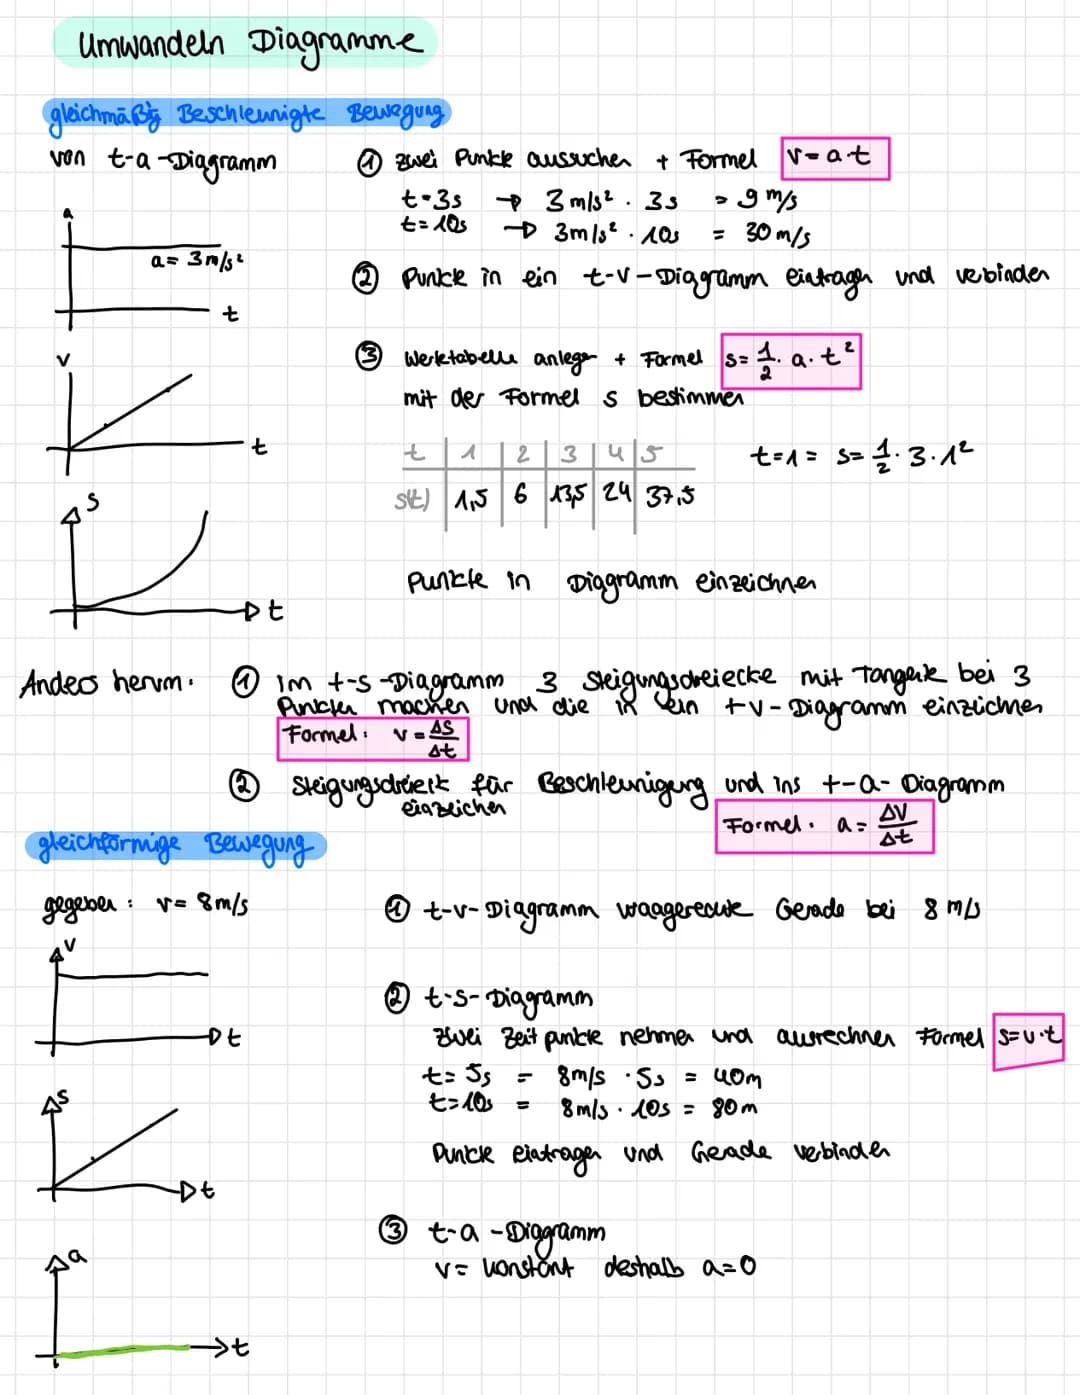 Umwandeln Diagramme
gleichmäßig Beschleunigte Bewegung
von t-a-Diagramm
a
a = 3m/s²
t
v
t
s
t
① zwei Punkte aussuchen + Formel v=a·t
t=3s → 3m/s² · 3s = 9 m/s
t=10s → 3m/s² · 10s = 30 m/s
② Punkte in ein t-v-Diagramm eintragen und verbinden
③ Wertetabelle anlegen + Formel s= 1/2 · a · t²
mit der Formel s bestimmen
t | 1 | 2 | 3 | 4 | 5
s(t) | 1,5 | 6 | 13,5 | 24 | 37,5
t=1 = s= 1/2 · 3 · 1²
Punkte in Diagramm einzeichnen
Anders herum: ① im t-s-Diagramm 3 Steigungsdreiecke mit Tangente bei 3
Punkten machen und die in ein t-v-Diagramm einzeichnen
Formel: v = Δs/Δt
② Steigungsdreieck für Beschleunigung und ins t-a-Diagramm
einzeichen
Formel: a = ΔV/Δt
gleichförmige Bewegung
gegeben: v= 8m/s
v
t
s
t
a
t
① t-v-Diagramm waagerechte Gerade bei 8 m/s
② t-s-Diagramm
zwei Zeitpunkte nehmen und ausrechnen Formel s=v·t
t= 5s = 8m/s · 5s = 40m
t=10s = 8m/s · 10s = 80m
Punkte eintragen und Gerade verbinden
③ t-a-Diagramm
v= konstant deshalb a=0